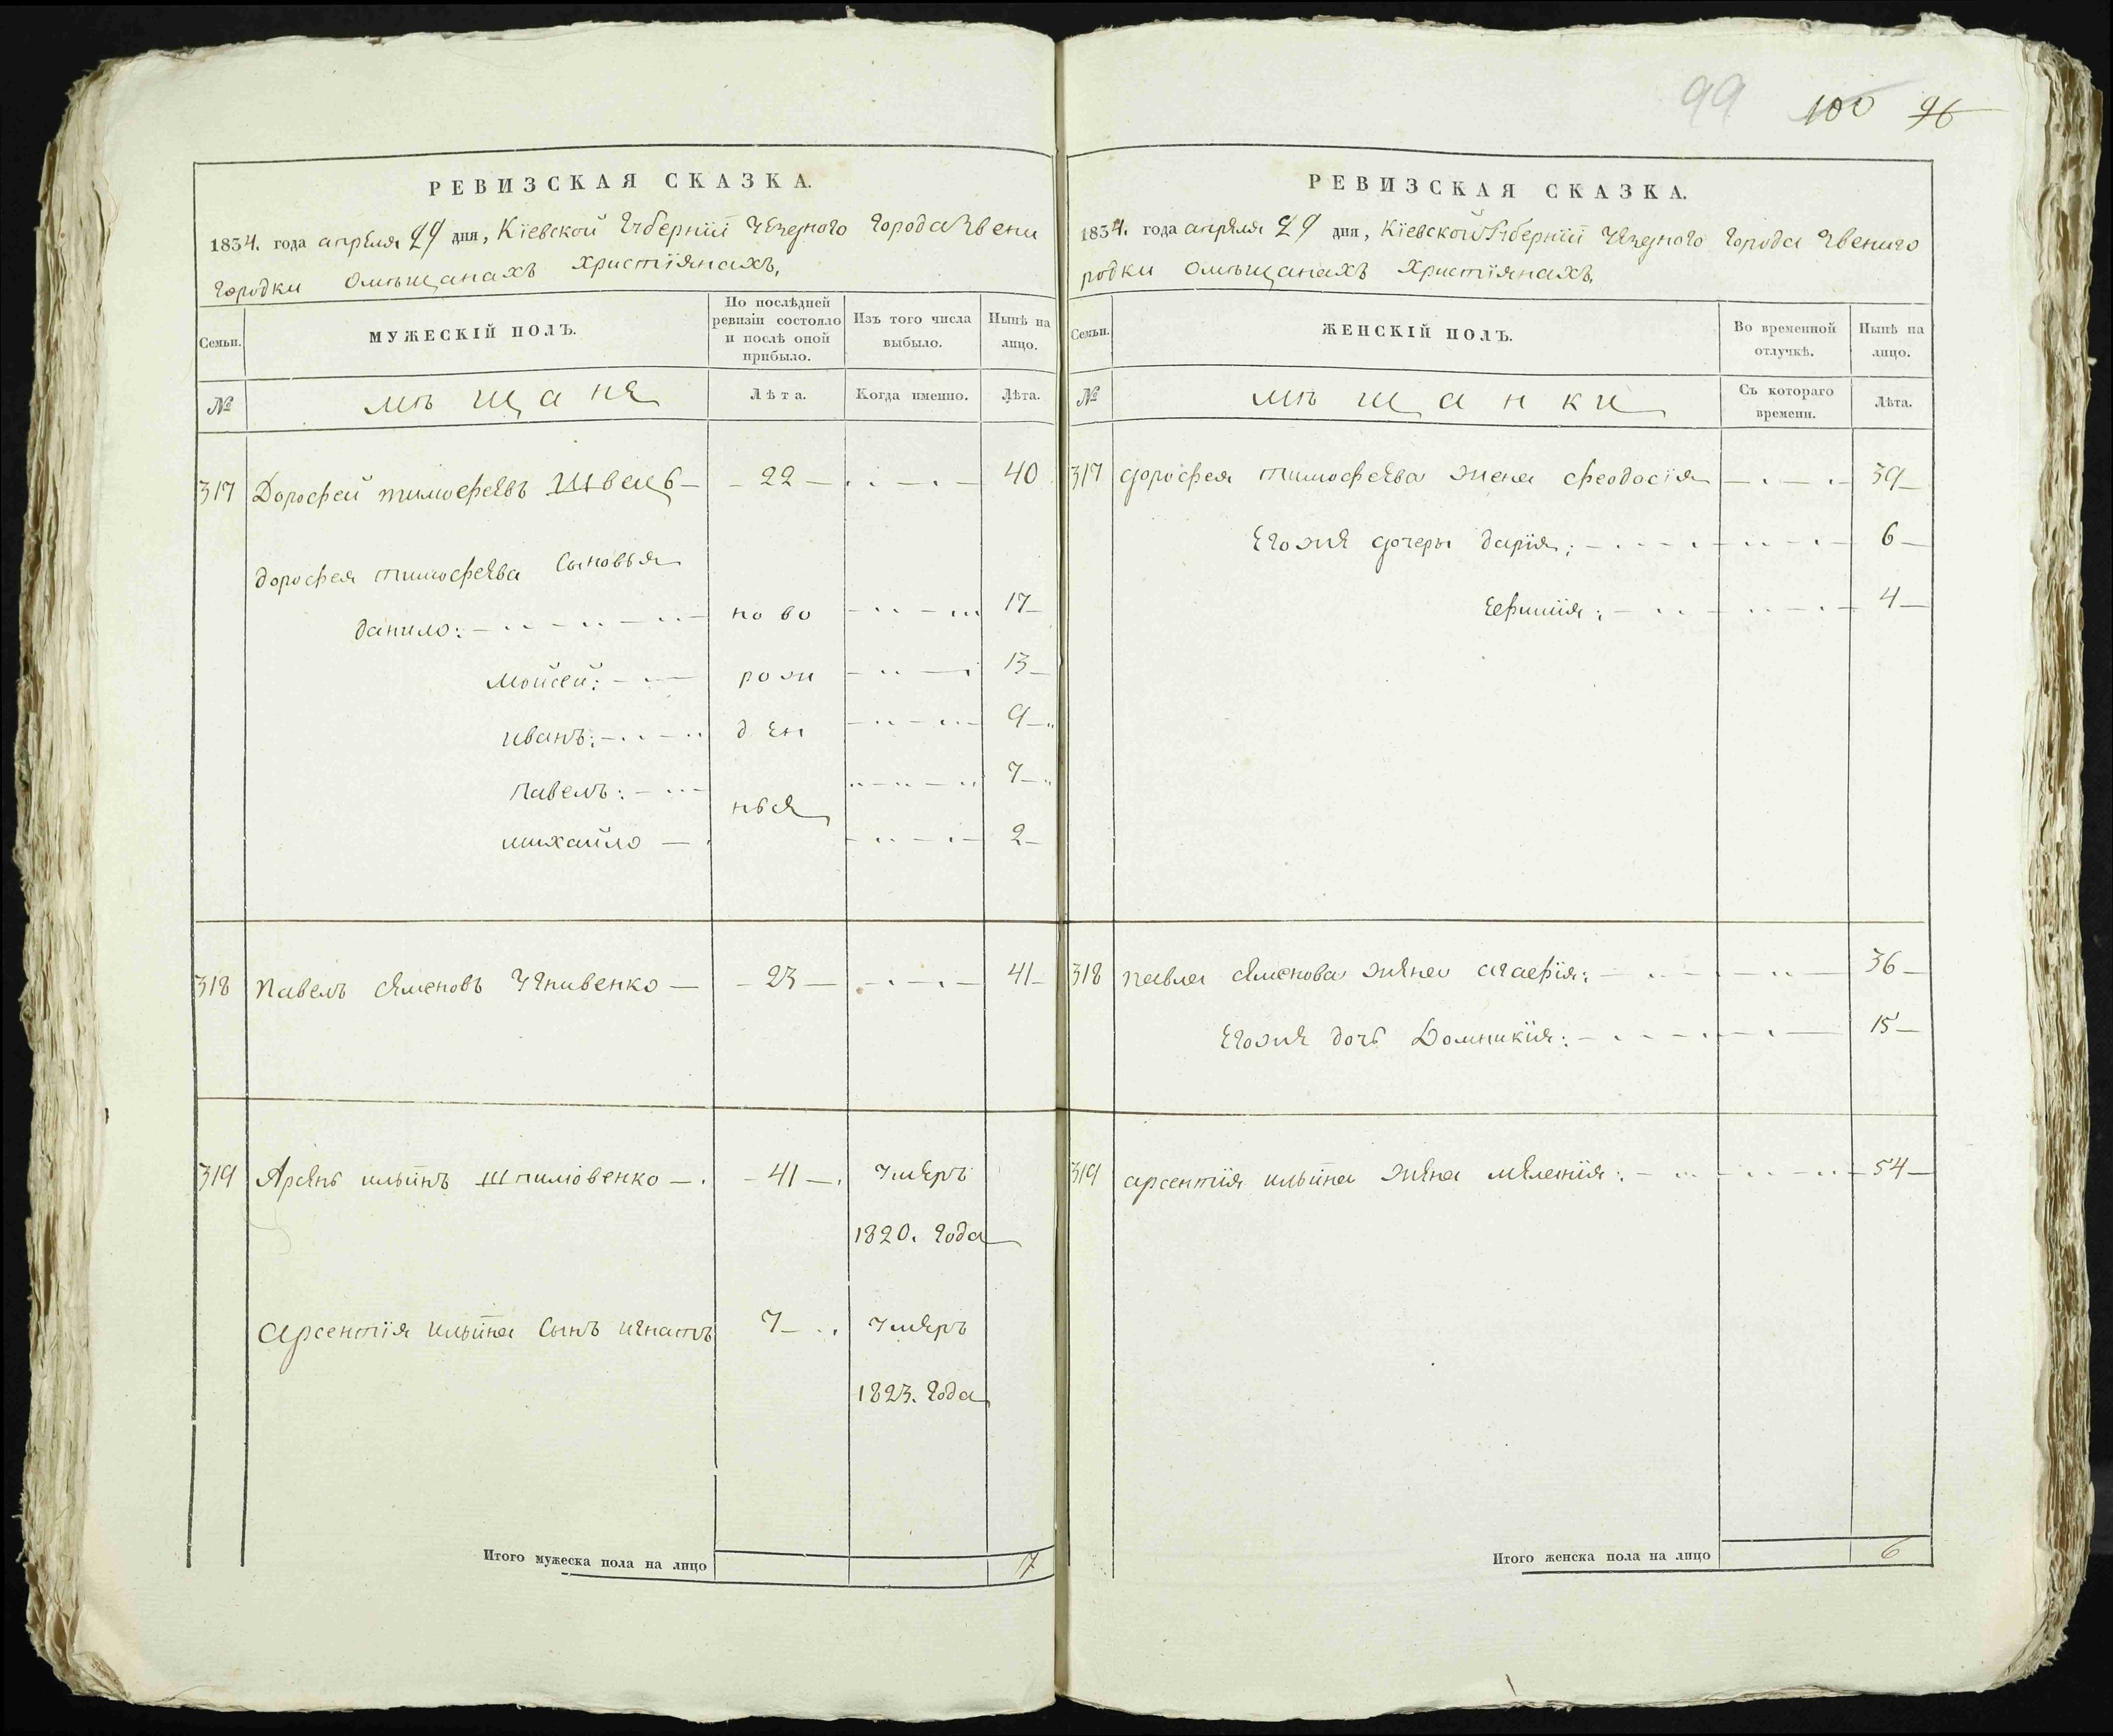 99 100 96
РЕВИЗСКАЯ СКАЗКА.
1834. года апреля 29 дня, Кіевской Губерніи Уезднаго Города Звени
городки омѣщанахъ христіянахъ,
Семьи. МУЖЕСКІЙ ПОЛЪ. По послѣдней ревизіи состояло и послѣ оной прибыло. Изъ того числа выбыло. Нынѣ на лицо.
№ мѣщане Лѣта. Когда именно. Лѣта.
317 Дорофей тимофеевъ Швець — 22 — 40
дорофея тимофеева сыновья
данило: ново 17
мойсей: рож 13
иванъ: ден 9
павелъ: 7
нья
михайло 2
318 павелъ семеновъ — 23 — 41
319 Арсень ильинъ шпилювенко — 41 — умеръ
1820. года
арсентія ильина сынъ игнатъ 7 умеръ
1823. года
Итого мужеска пола на лицо 7
РЕВИЗСКАЯ СКАЗКА.
1834. года апреля 29 дня, Кіевской Губерніи Уезднаго города Звениго
родки омѣщанахъ христіянахъ,
Семьи. ЖЕНСКІЙ ПОЛЪ. Во временной отлучкѣ. Нынѣ на лицо.
№ мѣщанки Съ котораго времени. Лѣта.
317 дорофея тимофеева жена феодосія 39
его же дочери дарія; 6
ефимія; 4
318 павла семенова жена агафія: 36
его же дочь Домникія: 15
319 арсентія ильина жена меланія: 54
Итого женска пола на лицо 6